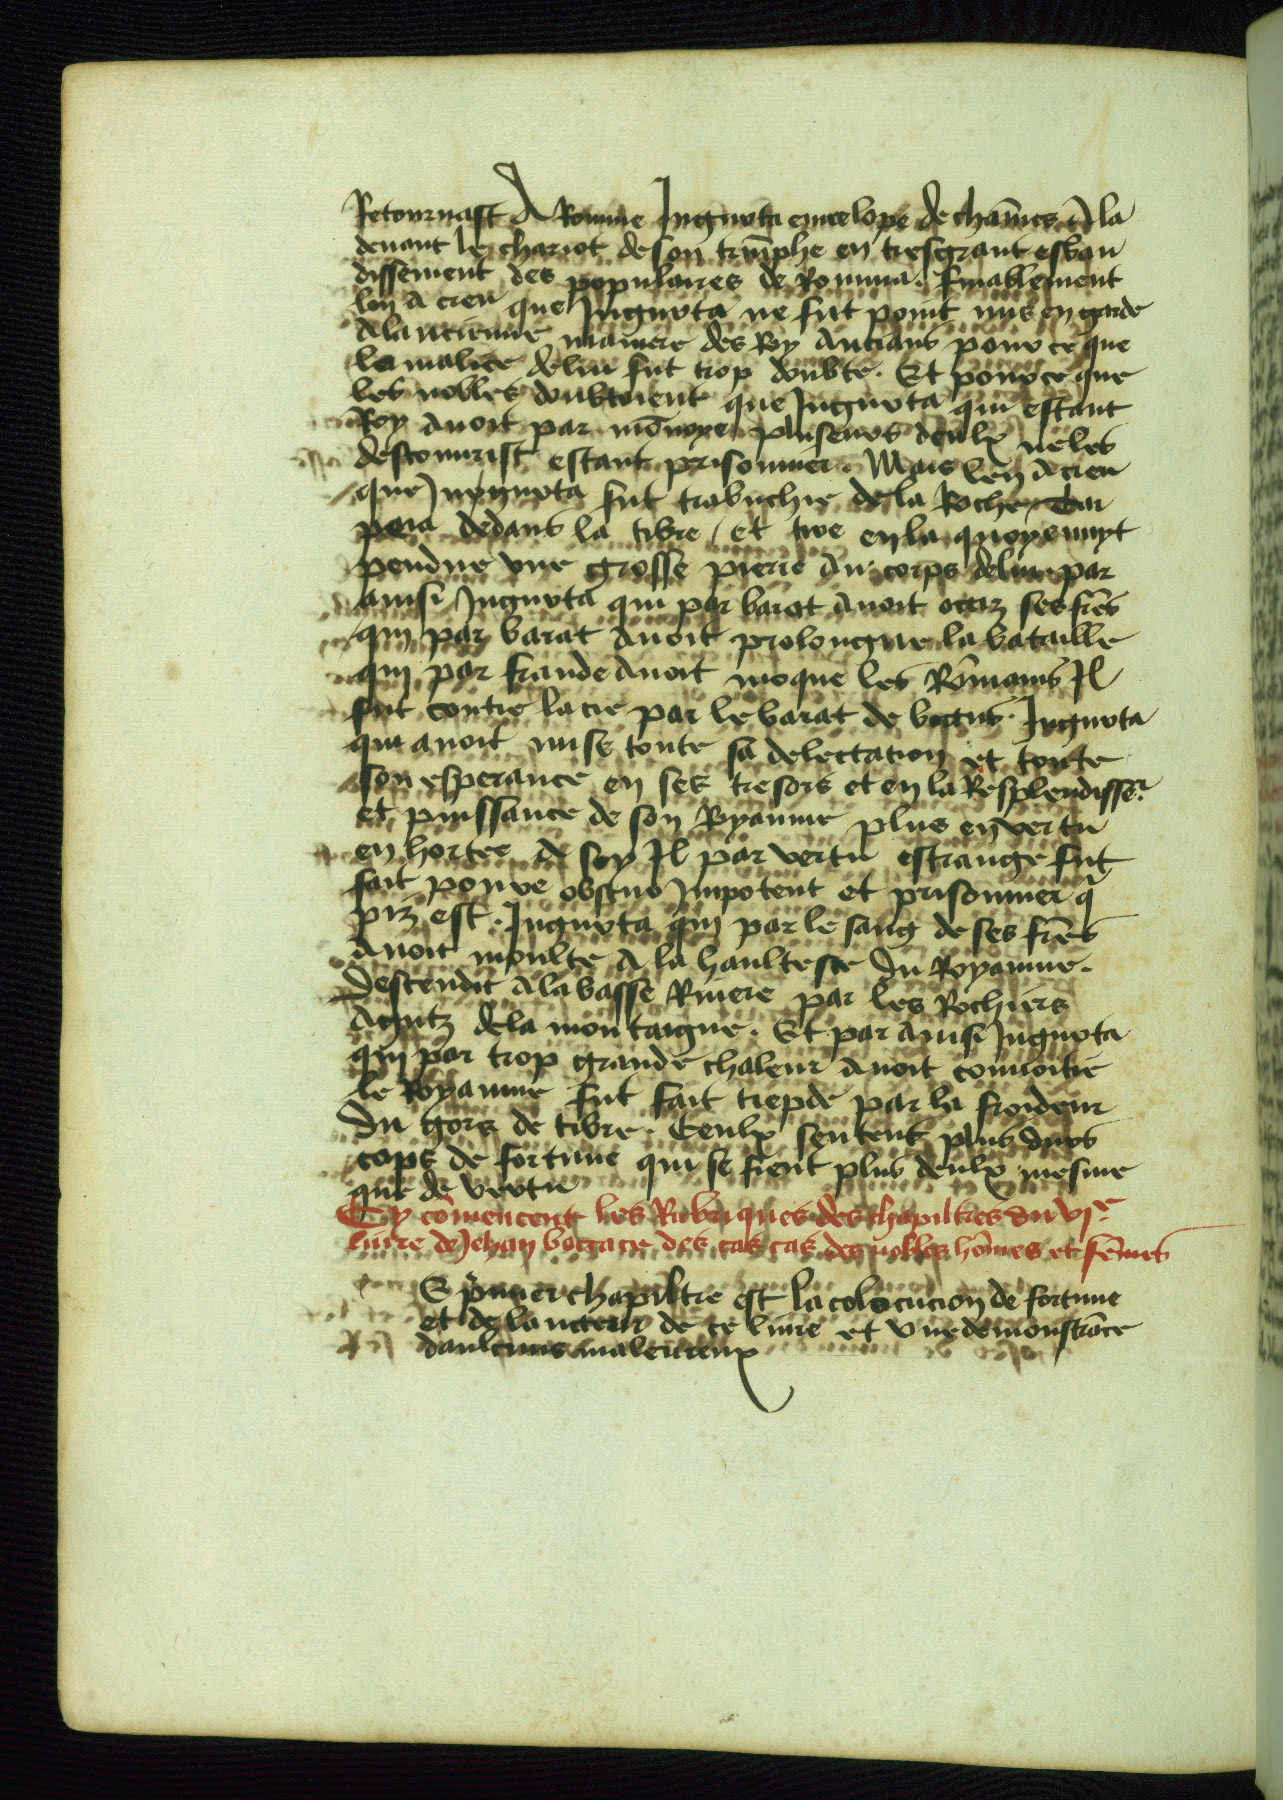 Retournast A Romme Jugurta envelope de chaines A la
deuant le chariot de son triũphe en tresgrant esbau
dissement des populaires de Romme. finablement
lon A creu que Jugurta ne fut point mis en garde
A lancienne maniere des Roy Ancians pour ce que
la malice de lui fut trop doubte. Et pource que
les nobles doubtoient que Jugurta qui estant
Roy auoit par mõnoye pluseurs deulx ne les
descouurist estant prisonnier. Mais len A creu
que Jugurta fut trabuchie de la Roche Tar
peia dedans la tibre / et
pendue vne grosse pierre Au corps de lui. par
ainsi Jugurta qui par barat Auoit occiz ses frẽs
qui par barat Auoit prolongue la bataille
qui par fraude Auoit moque les Rõmains Jl
fut contre lacie par le barat de bocus. Jugurta
qui auoit mise toute sa delectation et toute
son esperance en ses tresors et en la Resplendisser
et puissance de son Royaume plus en vertu
en hortee A soy Jl par vertu estrange fut
fait poure obscur Jmpotent et prisonnier q̃
piz est. Jugurta qui par le sang de ses frẽs
Auoit monlte A la haultesce du Royaume.
Descendit A la basse Riuiere par les Rochiers
Aguz de la montaigne. Et par Ainsi Jugurta
qui par trop grande chaleur Auoit conuoitie
le Royaume fut fait tiepde par la froideur
du gors de tibre. Ceulx sentent plus durs
cops de fortune qui se fient plus deulx mesme
que de vertu
Cy cõmencent les Rubriques des chapiltres du vje
liure de Jehan boccace des cas cas des nobles hõmes et fẽmes
premier chapiltre est la colocucion de fortune
et de lacteur de ce liure et vne demonstrãce
daulcuns maleureux